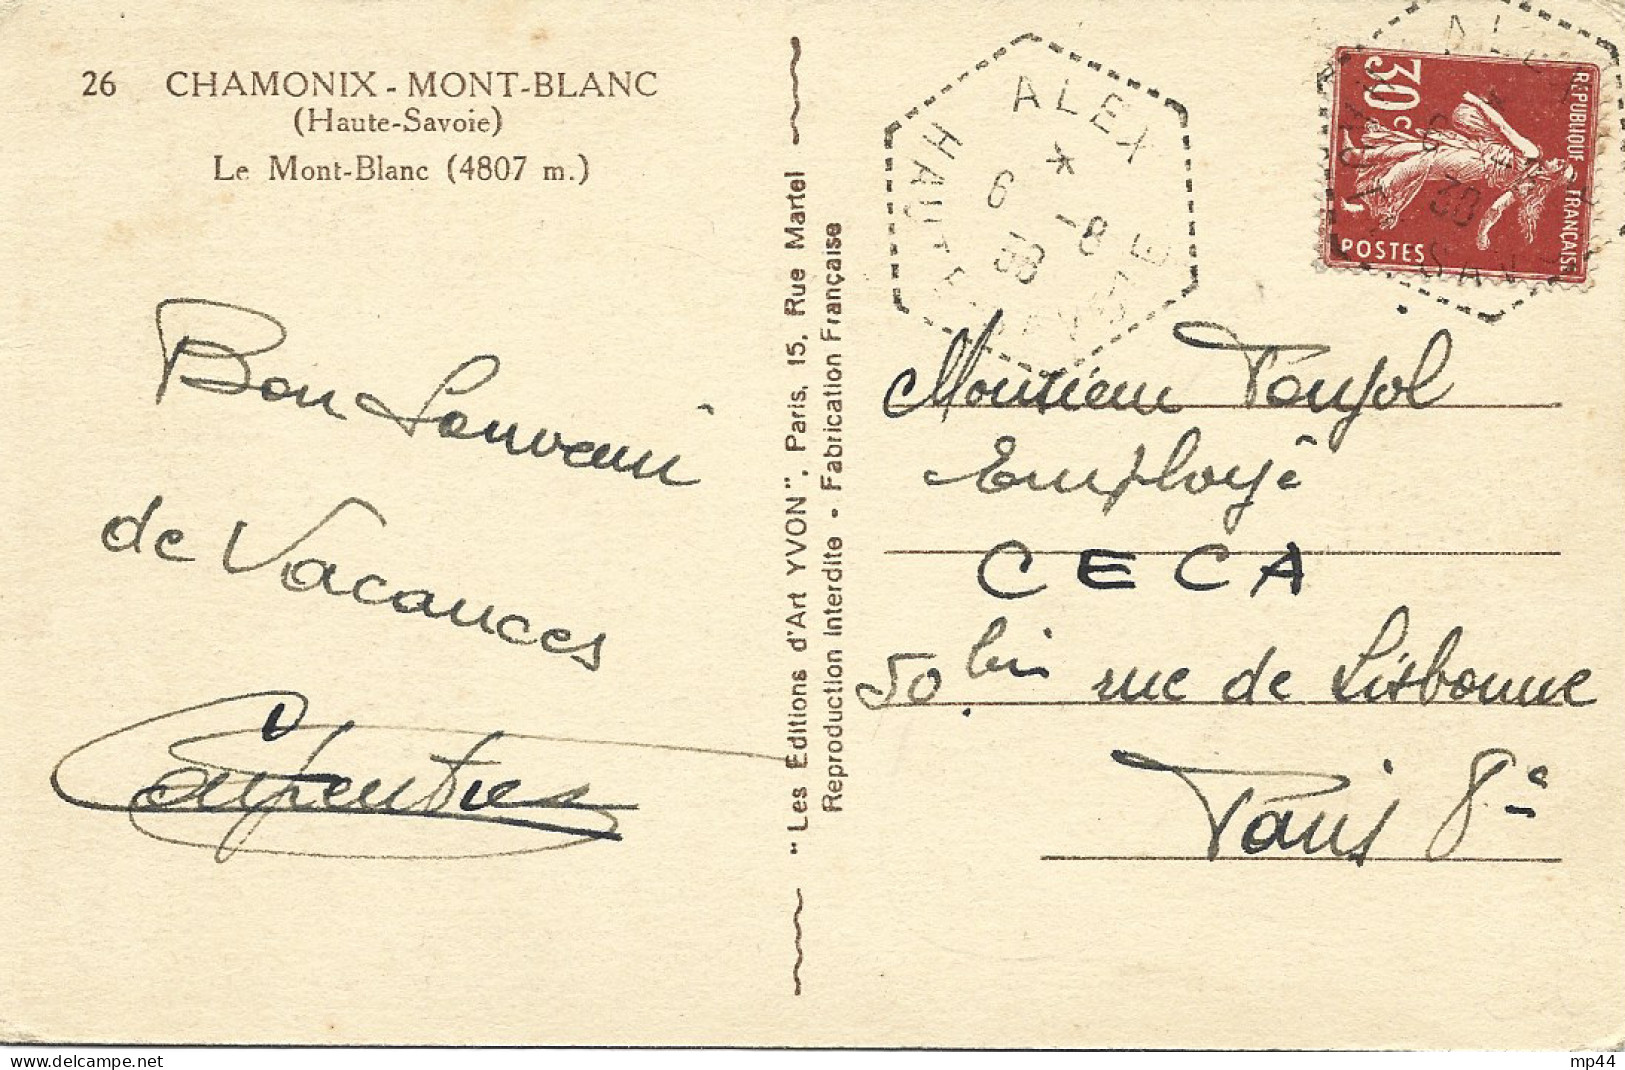 26 CHAMONIX - MONT-BLANC
(Haute-Savoie)
Le Mont-Blanc (4807 m.)
Bon Souvenir
de Vacances
Carpentier
"Les Editions d'Art YVON". Paris, 15, Rue Martel
Reproduction Interdite - Fabrication Française
ALEX
*
6 -8
38
HAUTE SAVOIE
30c
REPUBLIQUE FRANÇAISE
POSTES
Monsieur Poujol
Employé
CECA
50 bis rue de Lisbonne
Paris 8e
www.delcampe.net
mp44